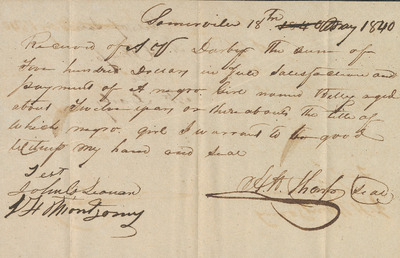 Somerville 18th May 1840
Received of A W Darby the sum of
Four hundred Dollars in full satisfaction and
payment of A negro Girl named aged
about Twelve years or thereabouts the title of
which negro girl I warrant to be good
Witness my hand and seal
Test
John C
J H Montgomry
A. H. Sharp Seal